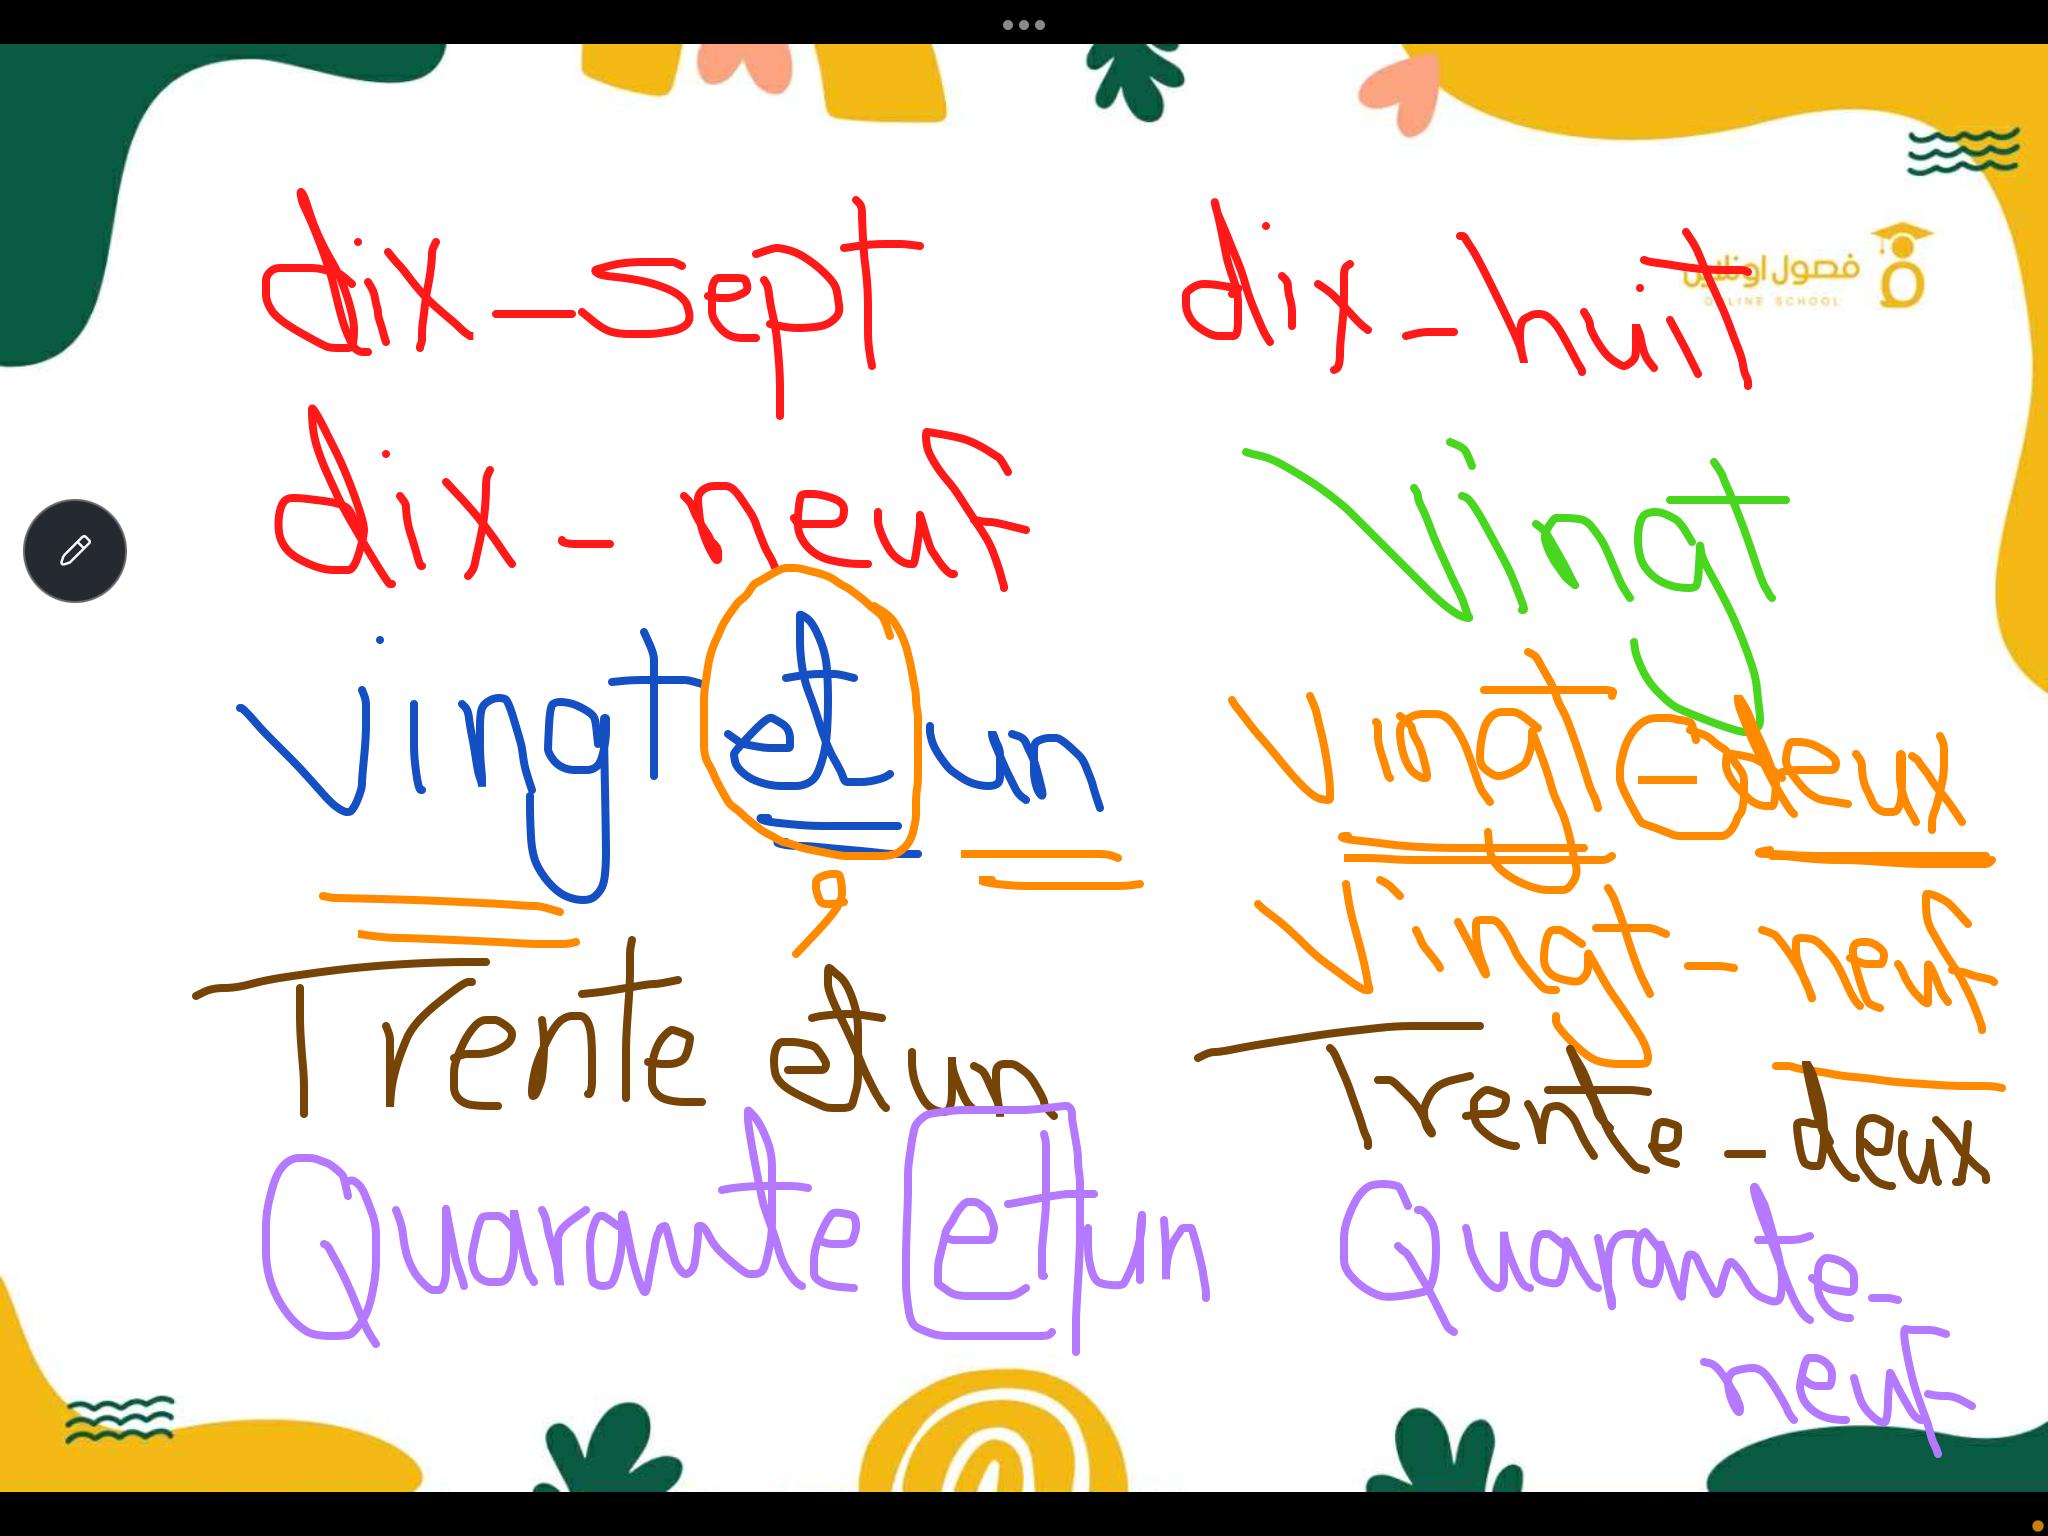 dix-sept dix-huit
فصول اونلاين
ONLINE SCHOOL
dix-neuf vingt
vingt et un vingt-deux
و
vingt-neuf
Trente et un Trente-deux
Quarante et un Quarante-
neuf